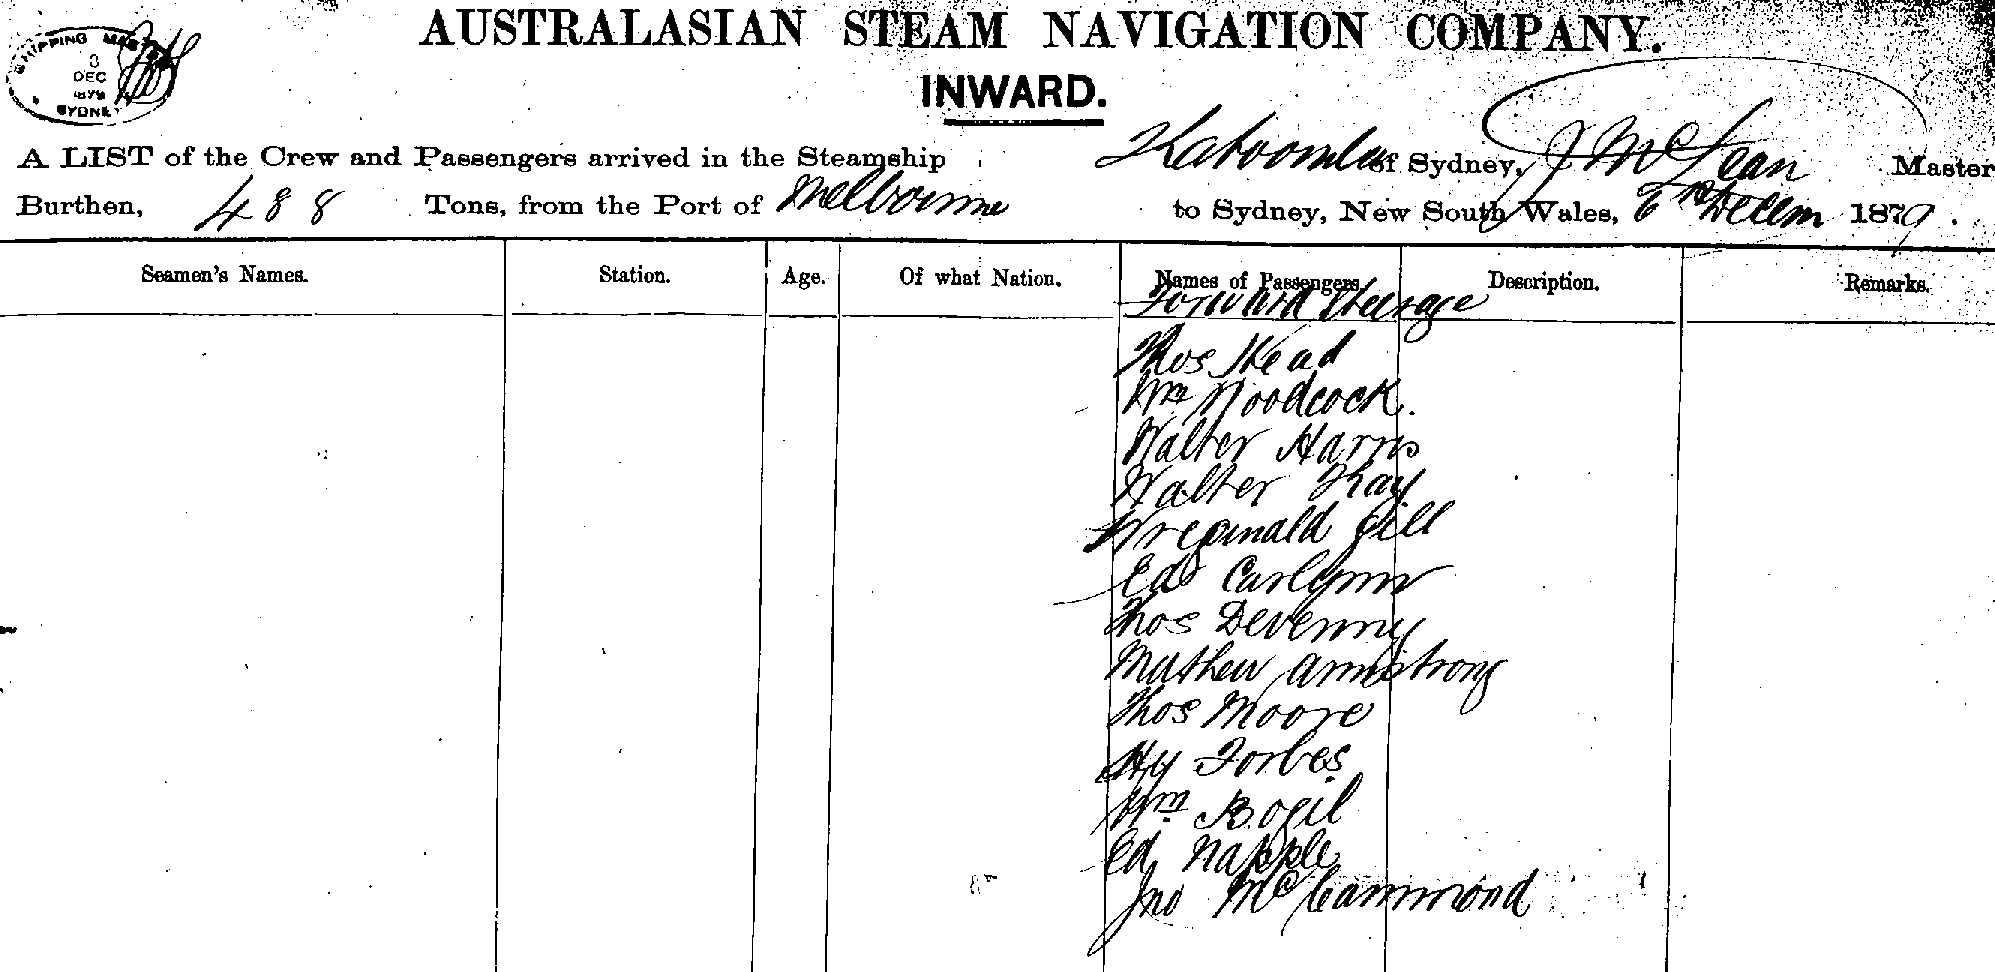 AUSTRALASIAN STEAM NAVIGATION COMPANY.
SHIPPING MASTER
3
DEC
1879
SYDNEY
INWARD.
A LIST of the Crew and Passengers arrived in the Steamship Katoomba of Sydney, J McLean Master
Burthen, 488 Tons, from the Port of Melbourne to Sydney, New South Wales, Decem 1879.
Seamen's Names. Station. Age. Of what Nation. Names of Passengers Description. Remarks.
Forward Steerage
Thos Head
Wm Woodcock.
Walter Harris
Walter Kay
Wreginald Gill
Ed Carlynn
Thos Devenny
Mathew Armstrong
Thos Moore
Hy Forbes
Wm Bogil
Ed Napple
Jno McCammond